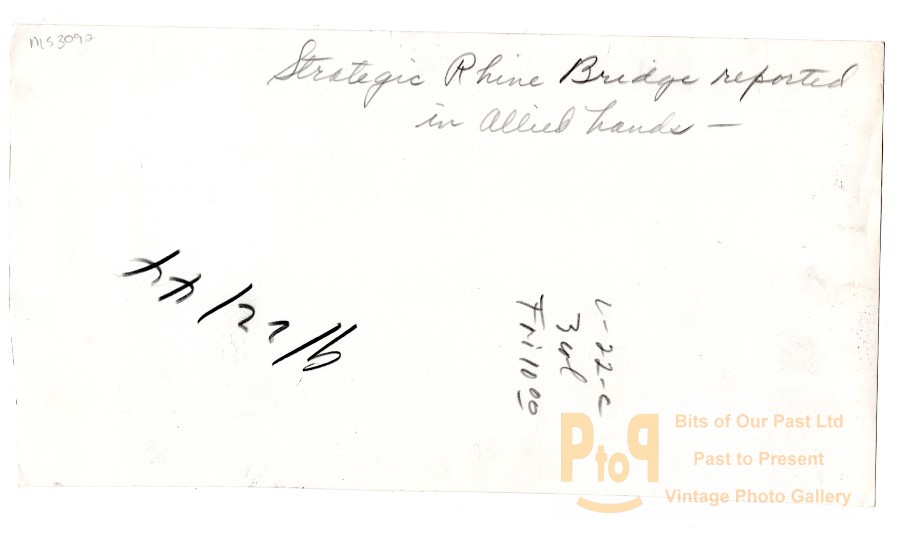 MS3092
Strategic Rhine Bridge reported
in Allied hands —
L-22-C
3 col
Fri 10 00
PtoP
Bits of Our Past Ltd
Past to Present
Vintage Photo Gallery